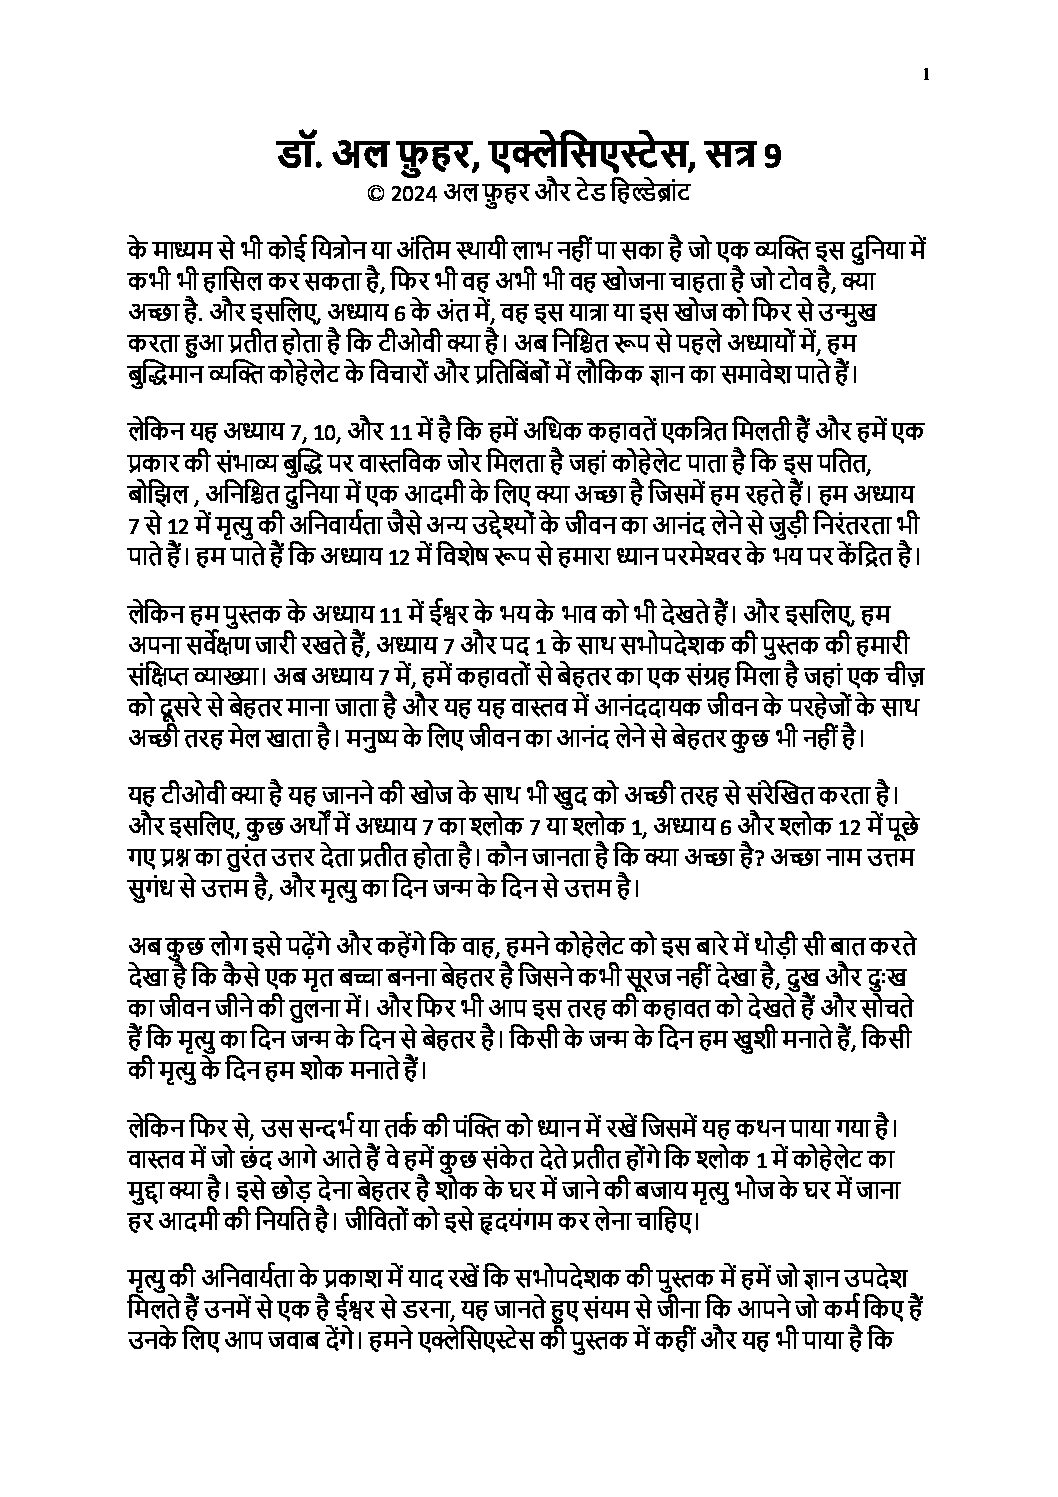 1
डॉ. अल फ़ुहर, एक्लेसिएस्टेस, सत्र 9
© 2024 अल फ़ुहर और टेड हिल्डेब्रांट
के माध्यम से भी कोई यित्रोन या अंतिम स्थायी लाभ नहीं पा सका है जो एक व्यक्ति इस दुनिया में
कभी भी हासिल कर सकता है, फिर भी वह अभी भी वह खोजना चाहता है जो टोव है, क्या
अच्छा है. और इसलिए, अध्याय 6 के अंत में, वह इस यात्रा या इस खोज को फिर से उन्मुख
करता हुआ प्रतीत होता है कि टीओवी क्या है। अब निश्चित रूप से पहले अध्यायों में, हम
बुद्धिमान व्यक्ति कोहेलेट के विचारों और प्रतिबिंबों में लौकिक ज्ञान का समावेश पाते हैं।
लेकिन यह अध्याय 7, 10, और 11 में है कि हमें अधिक कहावतें एकत्रित मिलती हैं और हमें एक
प्रकार की संभाव्य बुद्धि पर वास्तविक जोर मिलता है जहां कोहेलेट पाता है कि इस पतित,
बोझिल , अनिश्चित दुनिया में एक आदमी के लिए क्या अच्छा है जिसमें हम रहते हैं। हम अध्याय
7 से 12 में मृत्यु की अनिवार्यता जैसे अन्य उद्देश्यों के जीवन का आनंद लेने से जुड़ी निरंतरता भी
पाते हैं। हम पाते हैं कि अध्याय 12 में विशेष रूप से हमारा ध्यान परमेश्वर के भय पर केंद्रित है।
लेकिन हम पुस्तक के अध्याय 11 में ईश्वर के भय के भाव को भी देखते हैं। और इसलिए, हम
अपना सर्वेक्षण जारी रखते हैं, अध्याय 7 और पद 1 के साथ सभोपदेशक की पुस्तक की हमारी
संक्षिप्त व्याख्या। अब अध्याय 7 में, हमें कहावतों से बेहतर का एक संग्रह मिला है जहां एक चीज़
को दूसरे से बेहतर माना जाता है और यह यह वास्तव में आनंददायक जीवन के परहेजों के साथ
अच्छी तरह मेल खाता है। मनुष्य के लिए जीवन का आनंद लेने से बेहतर कुछ भी नहीं है।
यह टीओवी क्या है यह जानने की खोज के साथ भी खुद को अच्छी तरह से संरेखित करता है।
और इसलिए, कुछ अर्थों में अध्याय 7 का श्लोक 7 या श्लोक 1, अध्याय 6 और श्लोक 12 में पूछे
गए प्रश्न का तुरंत उत्तर देता प्रतीत होता है। कौन जानता है कि क्या अच्छा है? अच्छा नाम उत्तम
सुगंध से उत्तम है, और मृत्यु का दिन जन्म के दिन से उत्तम है।
अब कुछ लोग इसे पढ़ेंगे और कहेंगे कि वाह, हमने कोहेलेट को इस बारे में थोड़ी सी बात करते
देखा है कि कैसे एक मृत बच्चा बनना बेहतर है जिसने कभी सूरज नहीं देखा है, दुख और दुःख
का जीवन जीने की तुलना में। और फिर भी आप इस तरह की कहावत को देखते हैं और सोचते
हैं कि मृत्यु का दिन जन्म के दिन से बेहतर है। किसी के जन्म के दिन हम खुशी मनाते हैं, किसी
की मृत्यु के दिन हम शोक मनाते हैं।
लेकिन फिर से, उस सन्दर्भ या तर्क की पंक्ति को ध्यान में रखें जिसमें यह कथन पाया गया है।
वास्तव में जो छंद आगे आते हैं वे हमें कुछ संकेत देते प्रतीत होंगे कि श्लोक 1 में कोहेलेट का
मुद्दा क्या है। इसे छोड़ देना बेहतर है शोक के घर में जाने की बजाय मृत्यु भोज के घर में जाना
हर आदमी की नियति है। जीवितों को इसे हृदयंगम कर लेना चाहिए।
मृत्यु की अनिवार्यता के प्रकाश में याद रखें कि सभोपदेशक की पुस्तक में हमें जो ज्ञान उपदेश
मिलते हैं उनमें से एक है ईश्वर से डरना, यह जानते हुए संयम से जीना कि आपने जो कर्म किए हैं
उनके लिए आप जवाब देंगे। हमने एक्लेसिएस्टेस की पुस्तक में कहीं और यह भी पाया है कि